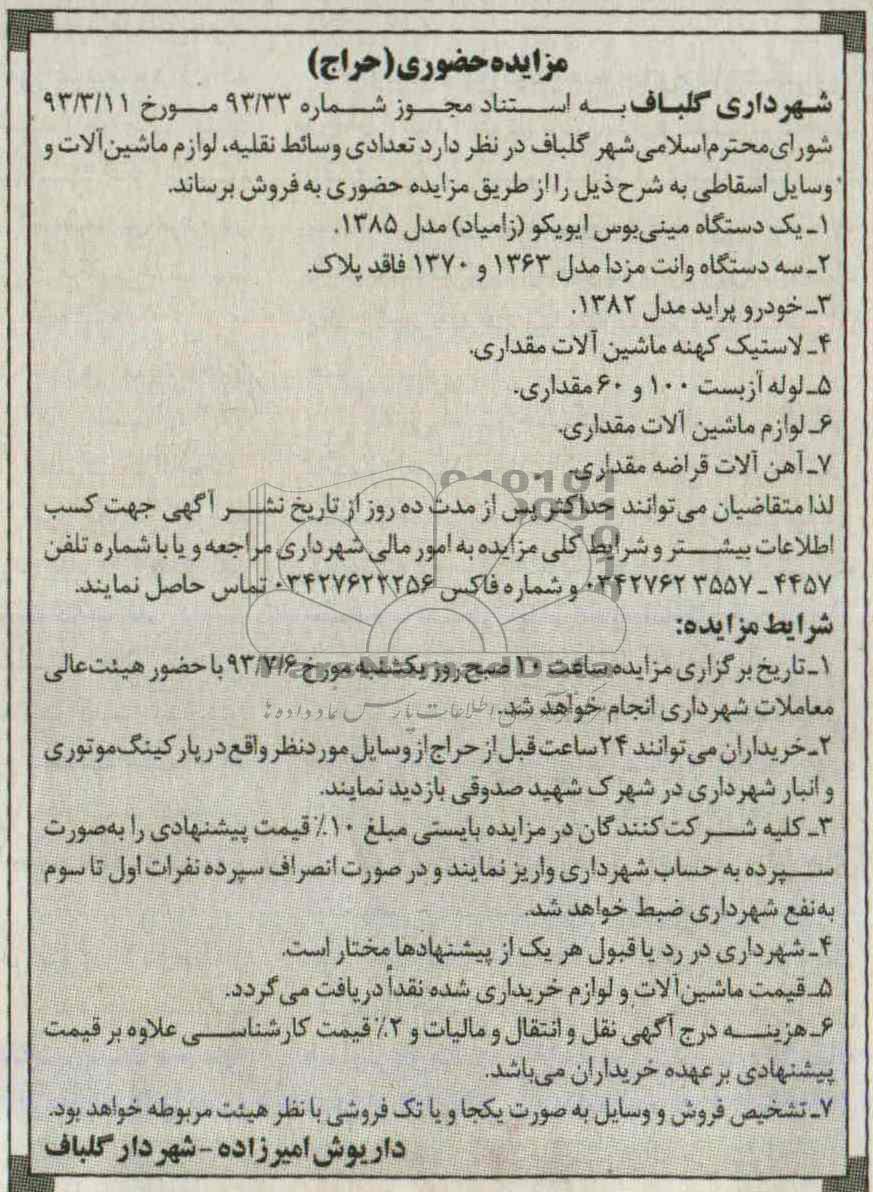 مزایده حضوری (حراج)
شهرداری گلباف به استناد مجوز شماره ۹۳/۳۳ مورخ ۹۳/۳/۱۱
شورای محترم اسلامی شهر گلباف در نظر دارد تعدادی وسائط نقلیه، لوازم ماشین‌آلات و
وسایل اسقاطی به شرح ذیل را از طریق مزایده حضوری به فروش برساند.
۱ـ یک دستگاه مینی‌بوس ایویکو (زامیاد) مدل ۱۳۸۵.
۲ـ سه دستگاه وانت مزدا مدل ۱۳۶۳ و ۱۳۷۰ فاقد پلاک.
۳ـ خودرو پراید مدل ۱۳۸۲.
۴ـ لاستیک کهنه ماشین آلات مقداری.
۵ـ لوله آزبست ۱۰۰ و ۶۰ مقداری.
۶ـ لوازم ماشین آلات مقداری.
۷ـ آهن آلات قراضه مقداری.
لذا متقاضیان می‌توانند حداکثر پس از مدت ده روز از تاریخ نشر آگهی جهت کسب
اطلاعات بیشتر و شرایط کلی مزایده به امور مالی شهرداری مراجعه و یا با شماره تلفن
۴۴۵۷ ـ ۳۵۵۷ ۰۳۴۲۷۶۲ و شماره فاکس ۰۳۴۲۷۶۲۲۲۵۶ تماس حاصل نمایند.
شرایط مزایده:
۱ـ تاریخ برگزاری مزایده ساعت ۱۰ صبح روز یکشنبه مورخ ۹۳/۷/۶ با حضور هیئت عالی
معاملات شهرداری انجام خواهد شد.
۲ـ خریداران می‌توانند ۲۴ ساعت قبل از حراج از وسایل مورد نظر واقع در پارکینگ موتوری
و انبار شهرداری در شهرک شهید صدوقی بازدید نمایند.
۳ـ کلیه شرکت‌کنندگان در مزایده بایستی مبلغ ۱۰٪ قیمت پیشنهادی را به‌صورت
سپرده به حساب شهرداری واریز نمایند و در صورت انصراف سپرده نفرات اول تا سوم
به‌نفع شهرداری ضبط خواهد شد.
۴ـ شهرداری در رد یا قبول هر یک از پیشنهادها مختار است.
۵ـ قیمت ماشین‌آلات و لوازم خریداری شده نقداً دریافت می گردد.
۶ـ هزینه درج آگهی نقل و انتقال و مالیات و ۲٪ قیمت کارشناسی علاوه بر قیمت
پیشنهادی بر عهده خریداران می‌باشد.
۷ـ تشخیص فروش و وسایل به صورت یکجا و یا تک فروشی با نظر هیئت مربوطه خواهد بود.
داریوش امیرزاده - شهردار گلباف